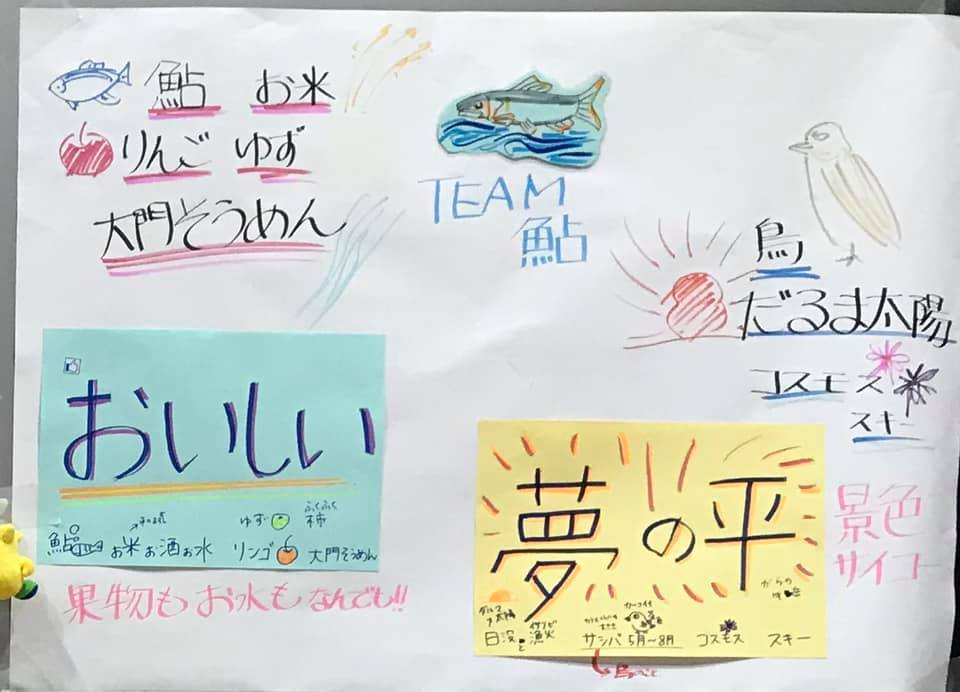 鮎 お米
りんご ゆず
大門そうめん
TEAM
鮎
鳥
だるま太陽
コスモス
スキー
おいしい
ゆず
ふくふく
柿
鮎
お米 お酒 お水
リンゴ
大門そうめん
果物も お水も なんでも!!
夢の平
景色
サイコー
ダルマ
太陽
日没と
イサリビ
漁火
カッコイイ
サシバ 5月〜8月
コスモス
スキー
鳥のこと